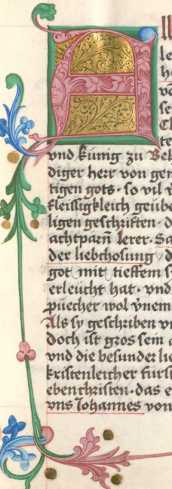 A
le
vnd kunig zu Beh
diger herr von gen
tigen gots · so vil
fleissigkleich geübe
ligen geschriften · d
achtparn lerer · Sa
der liebchosung · d
got mit tieffem s
erleucht hat · vnd
puecher wol vnem
Als sy geschriben v
doch ist gros sein a
vnd die besunder lie
kristenleicher fürst
ebenchristen · das e
vns Johannes von